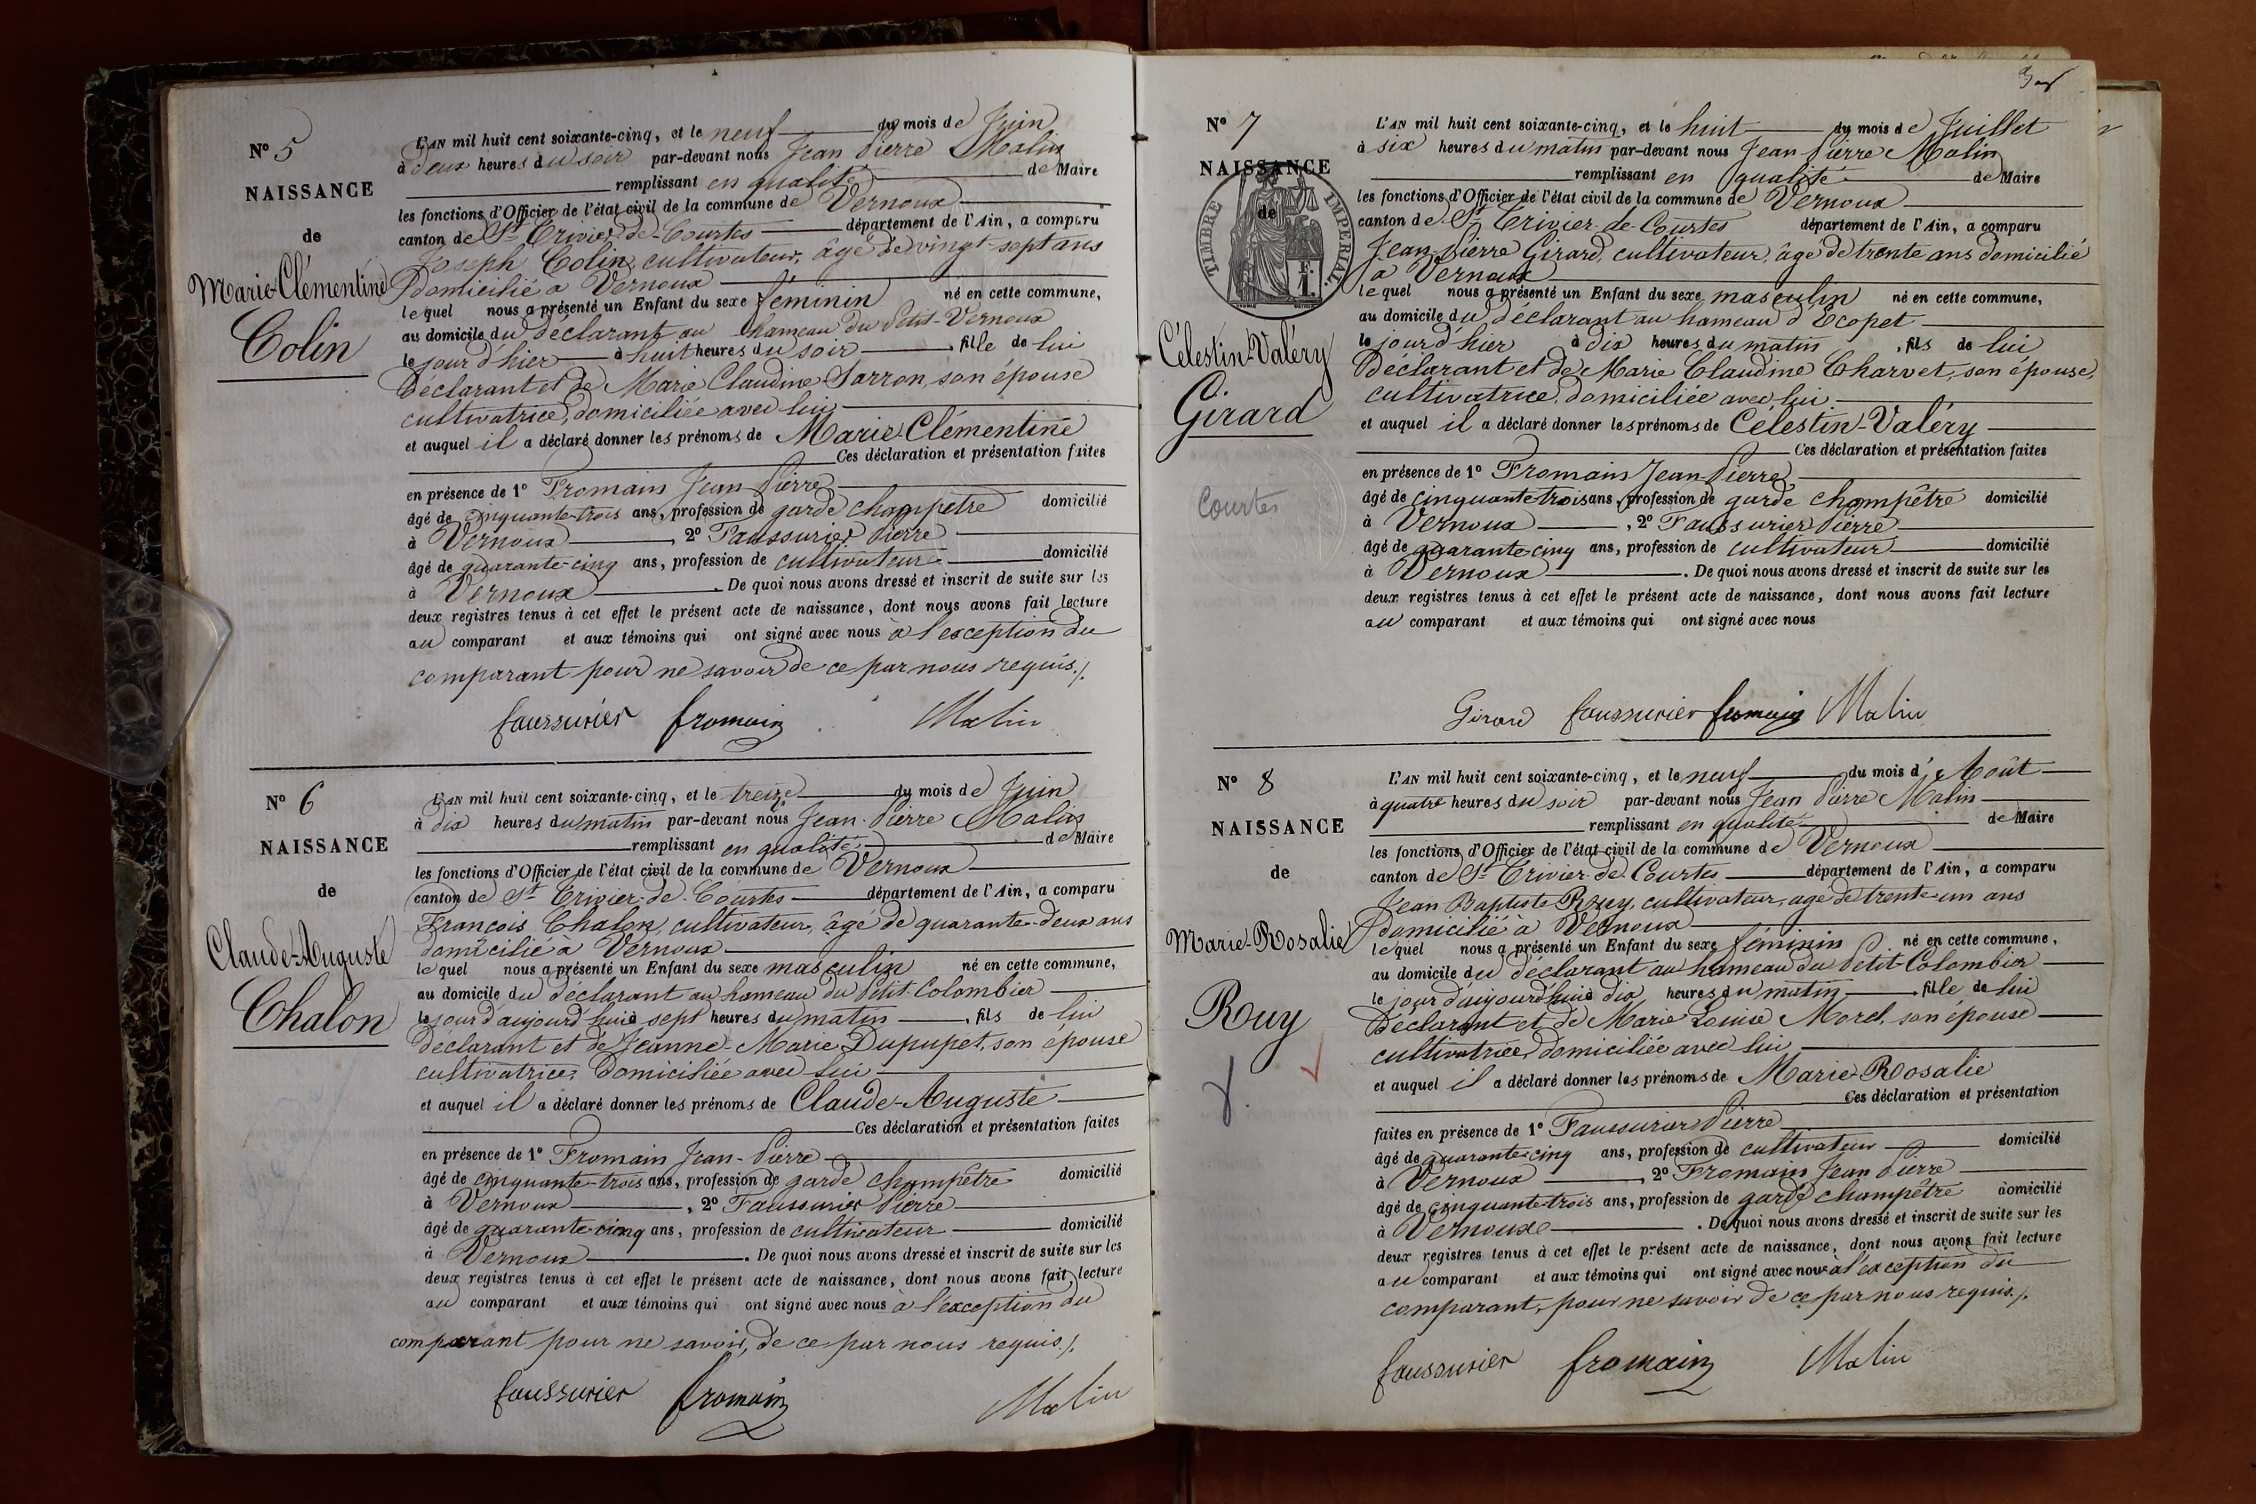 N° 5
NAISSANCE
de
Marie-Clémentine
Colin
L'AN mil huit cent soixante-cinq, et le neuf du mois de Juin
à deux heures du soir par-devant nous Jean Pierre Malin
remplissant en qualité de Maire
les fonctions d'Officier de l'état civil de la commune de Vernoux
canton de St Trivier-de-Courtes département de l'Ain, a comparu
Joseph Colin, cultivateur, âgé de vingt-sept ans
domicilié à Vernoux
lequel nous a présenté un Enfant du sexe féminin né en cette commune,
au domicile du déclarant au hameau du Petit-Vernoux
le jour d'hier à huit heures du soir, fille de lui
déclarant et de Marie Claudine Sarron, son épouse
cultivatrice, domiciliée avec lui
et auquel il a déclaré donner les prénoms de Marie-Clémentine
Ces déclaration et présentation faites
en présence de 1° Fromain Jean-Pierre
âgé de cinquante-trois ans, profession de garde champêtre domicilié
à Vernoux, 2° Faussurier Pierre
âgé de quarante-cinq ans, profession de cultivateur domicilié
à Vernoux. De quoi nous avons dressé et inscrit de suite sur les
deux registres tenus à cet effet le présent acte de naissance, dont nous avons fait lecture
au comparant et aux témoins qui ont signé avec nous à l'exception du
comparant pour ne savoir de ce par nous requis./.
faussurier fromain Malin
N° 6
NAISSANCE
de
Claude-Auguste
Chalon
L'AN mil huit cent soixante-cinq, et le treize du mois de Juin
à dix heures du matin par-devant nous Jean-Pierre Malin
remplissant en qualité de Maire
les fonctions d'Officier de l'état civil de la commune de Vernoux
canton de St Trivier-de-Courtes département de l'Ain, a comparu
François Chalon, cultivateur, âgé de quarante-deux ans
domicilié à Vernoux
lequel nous a présenté un Enfant du sexe masculin né en cette commune,
au domicile du déclarant au hameau du Petit-Colombier
le jour d'aujourd'hui à sept heures du matin, fils de lui
déclarant et de Jeanne-Marie Dupupet, son épouse
cultivatrice, domiciliée avec lui
et auquel il a déclaré donner les prénoms de Claude-Auguste
Ces déclaration et présentation faites
en présence de 1° Fromain Jean-Pierre
âgé de cinquante-trois ans, profession de garde champêtre domicilié
à Vernoux, 2° Faussurier Pierre
âgé de quarante-cinq ans, profession de cultivateur domicilié
à Vernoux. De quoi nous avons dressé et inscrit de suite sur les
deux registres tenus à cet effet le présent acte de naissance, dont nous avons fait lecture
au comparant et aux témoins qui ont signé avec nous à l'exception du
comparant pour ne savoir, de ce par nous requis./.
faussurier fromain Malin
N° 7
NAISSANCE
de
TIMBRE IMPERIAL
Célestin-Valéry
Girard
Courtes
L'AN mil huit cent soixante-cinq, et le huit du mois de Juillet
à six heures du matin par-devant nous Jean-Pierre Malin
remplissant en qualité de Maire
les fonctions d'Officier de l'état civil de la commune de Vernoux
canton de St Trivier-de-Courtes département de l'Ain, a comparu
Jean-Pierre Girard, cultivateur, âgé de trente ans domicilié
à Vernoux
lequel nous a présenté un Enfant du sexe masculin né en cette commune,
au domicile du déclarant au hameau d'Ecopet
le jour d'hier à dix heures du matin, fils de lui
déclarant et de Marie Claudine Charvet, son épouse,
cultivatrice, domiciliée avec lui
et auquel il a déclaré donner les prénoms de Célestin-Valéry
Ces déclaration et présentation faites
en présence de 1° Fromain Jean-Pierre
âgé de cinquante-trois ans, profession de garde champêtre domicilié
à Vernoux, 2° Faussurier Pierre
âgé de quarante-cinq ans, profession de cultivateur domicilié
à Vernoux. De quoi nous avons dressé et inscrit de suite sur les
deux registres tenus à cet effet le présent acte de naissance, dont nous avons fait lecture
au comparant et aux témoins qui ont signé avec nous
Girard faussurier fromain Malin
N° 8
NAISSANCE
de
Marie-Rosalie
Ruy
L'AN mil huit cent soixante-cinq, et le neuf du mois d'Août
à quatre heures du soir par-devant nous Jean Pierre Malin
remplissant en qualité de Maire
les fonctions d'Officier de l'état civil de la commune de Vernoux
canton de St Trivier-de-Courtes département de l'Ain, a comparu
Jean Baptiste Rouy, cultivateur, âgé de trente-un ans
domicilié à Vernoux
lequel nous a présenté un Enfant du sexe féminin né en cette commune,
au domicile du déclarant au hameau du Petit-Colombier
le jour d'aujourd'hui à dix heures du matin, fille de lui
déclarant et de Marie Louise Morel, son épouse
cultivatrice, domiciliée avec lui
et auquel il a déclaré donner les prénoms de Marie-Rosalie
Ces déclaration et présentation
faites en présence de 1° Faussurier Pierre
âgé de quarante-cinq ans, profession de cultivateur domicilié
à Vernoux, 2° Fromain Jean Pierre
âgé de cinquante-trois ans, profession de garde champêtre domicilié
à Vernoux. De quoi nous avons dressé et inscrit de suite sur les
deux registres tenus à cet effet le présent acte de naissance, dont nous avons fait lecture
au comparant et aux témoins qui ont signé avec nous à l'exception du
comparant, pour ne savoir de ce par nous requis./.
faussurier fromain Malin